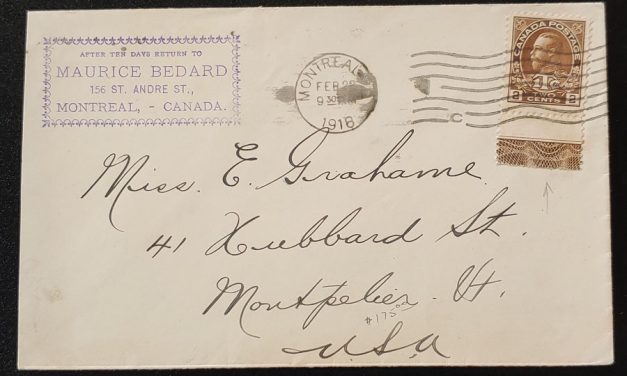 AFTER TEN DAYS RETURN TO
MAURICE BEDARD
156 ST. ANDRE ST.,
MONTREAL, - CANADA.
MONTREAL
FEB
9 30
1918
C
CANADA POSTAGE
2 CENTS 2
Miss. E. Grahame
41 Hubbard St.
Montpelier. Vt.
#175
U.S.A